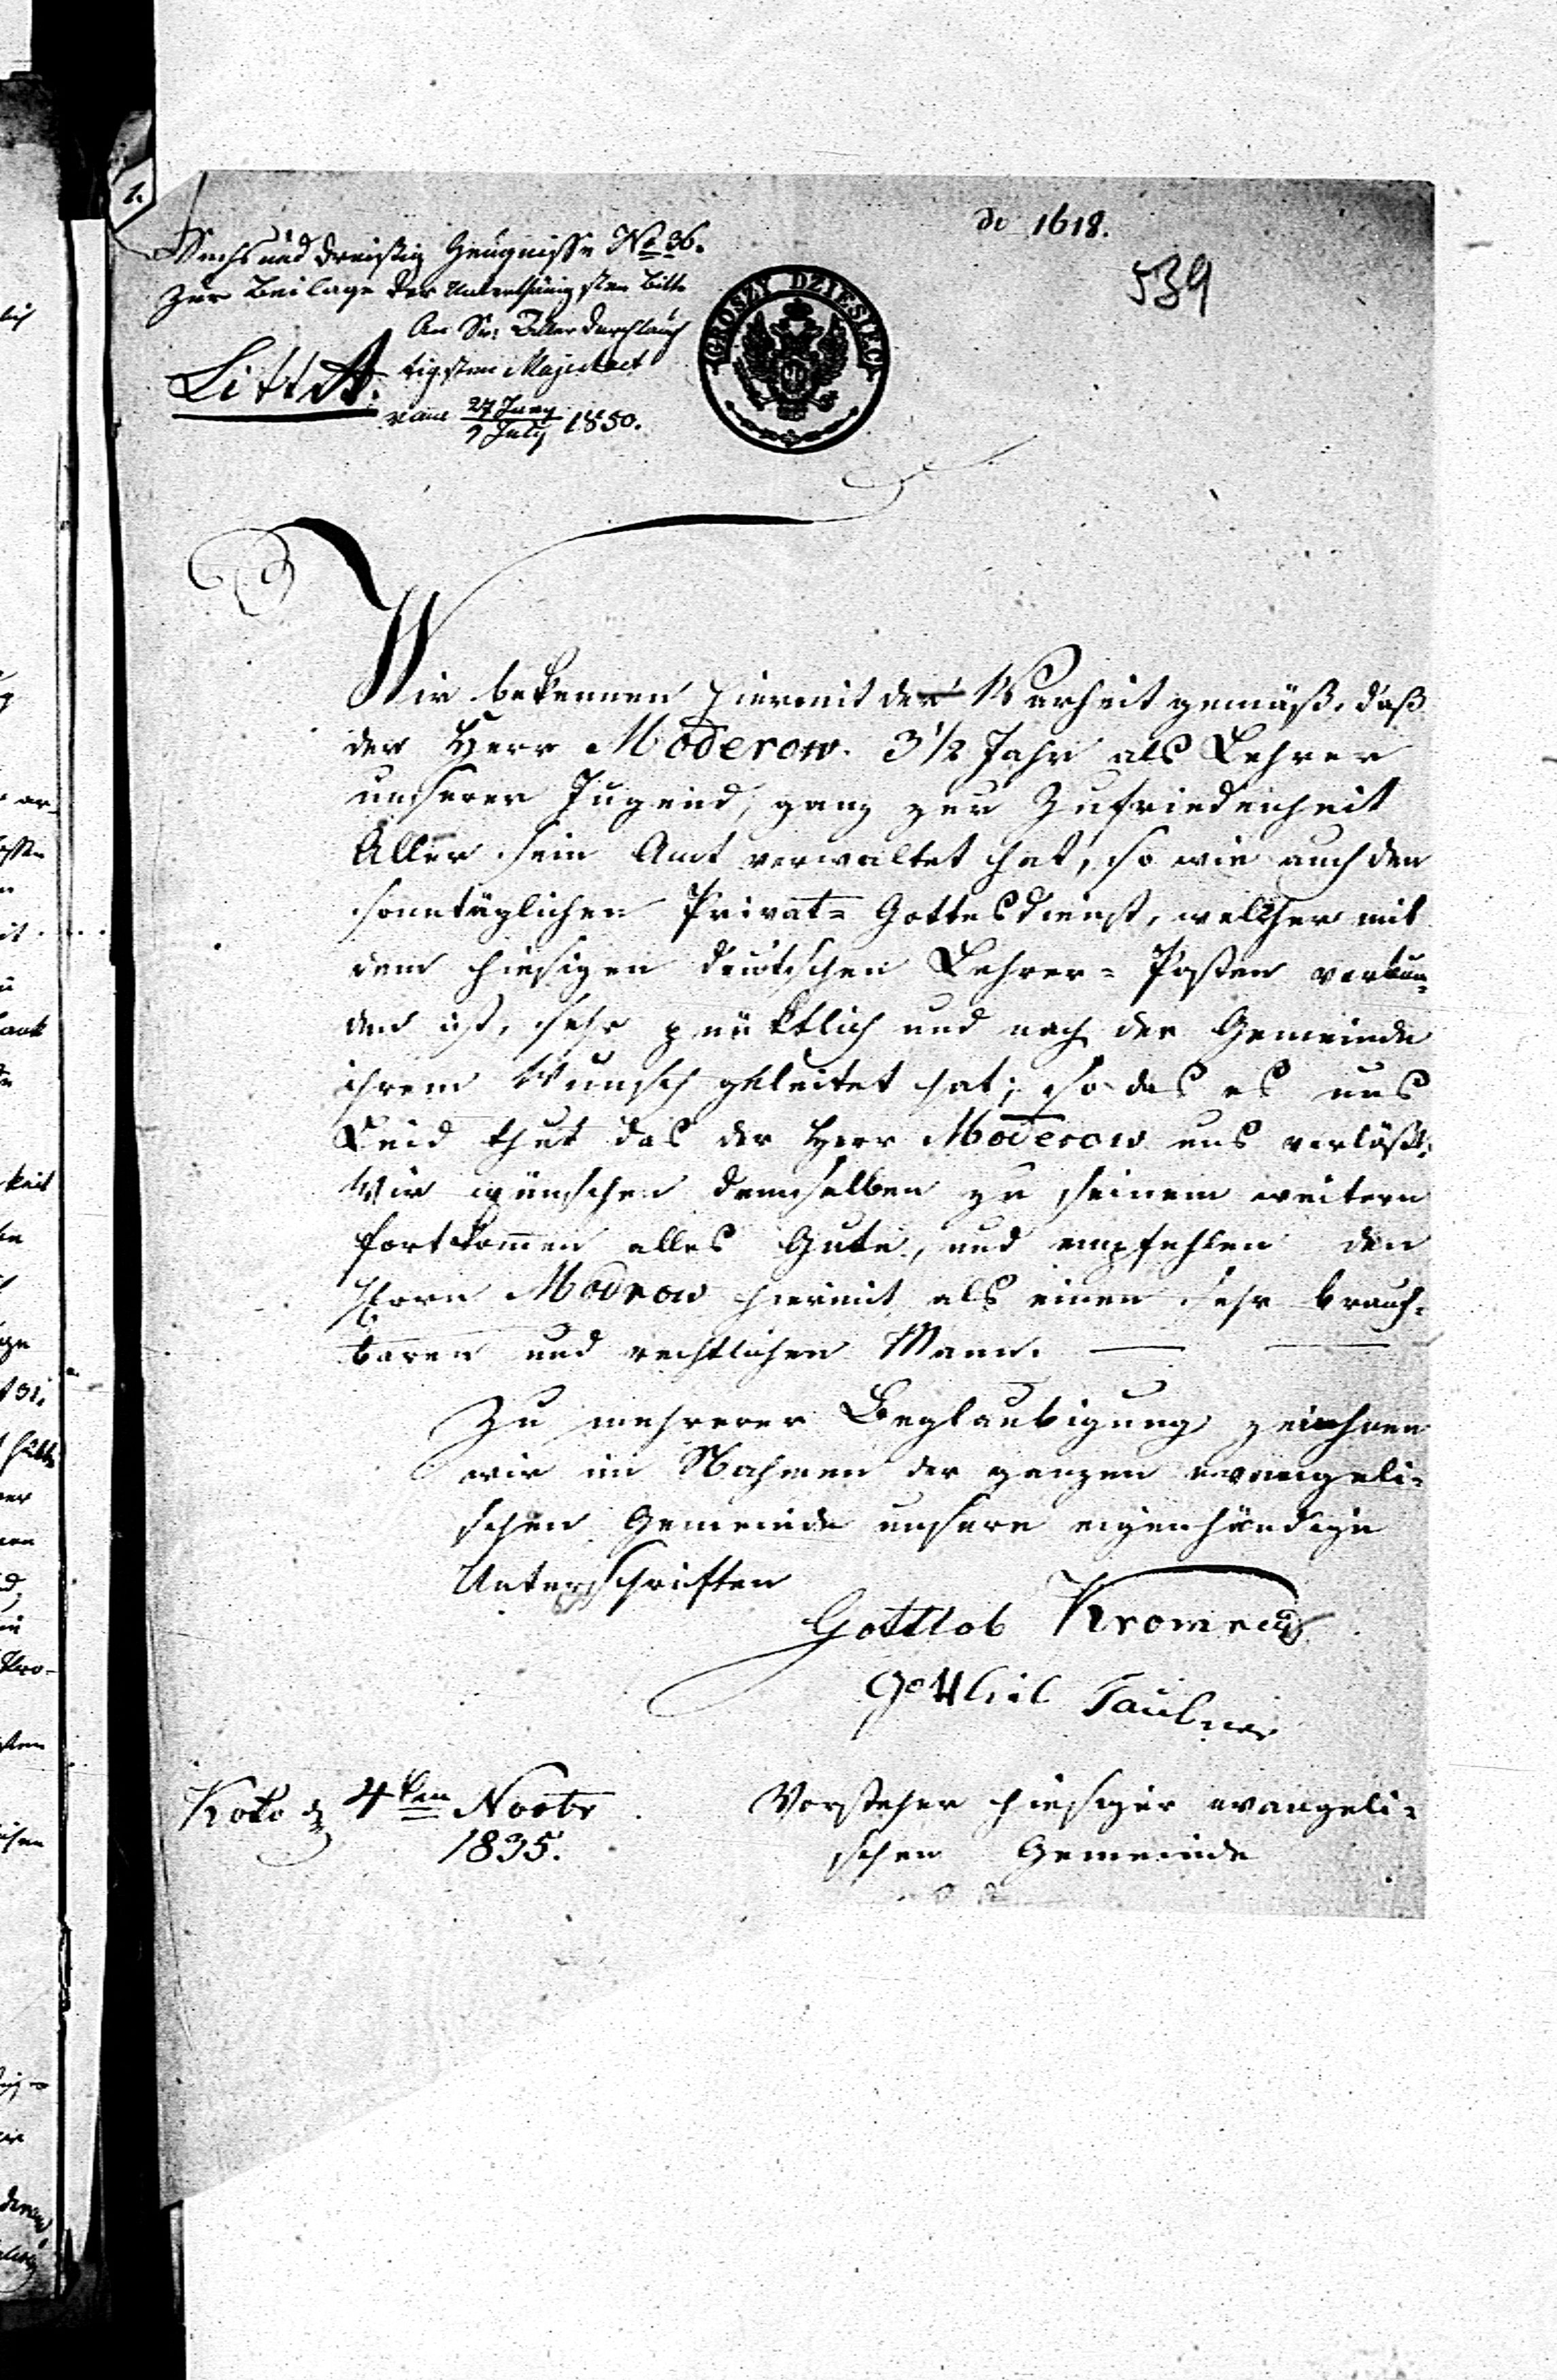 1.
de 1618.
539
Sechs und dreißig Zeugnisse No 36.
zur Beilage der Unterthänigsten Bitte
An Sr: Allerdurchlauch
tigsten Majestaet
Litt A.
vom 27 Juny / 9 July 1850.
GROSZY DZIESIĘĆ
Wir bekennen hiermit der Warheit gemäß, daß
der Herr Moderow. 3 1/2 Jahr als Lehrer
unserer Jugend, ganz zur Zufriedenheit
Aller sein Amt verwaltet hat, so wie auch den
sonntäglichen Privat= Gottesdienst, welcher mit
dem hiesigen deutschen Lehrer= Posten verbun=
den ist, sehr pünktlich und nach der Gemeinde
ihrem Wunsch geleitet hat; so das es uns
Leid thut das der Herr Moderow uns verläßt.
Wir wünschen demselben zu seinem weitern
fortkommen alles Gute, und empfehlen den
Herrn Modrow hiermit als einen sehr brauch=
baren und rechtlichen Mann.
Zu mehrerer Beglaubigung zeichnen
wir im Nahmen der ganzen evangeli=
schen Gemeinde unsere eigenhändige
Unterschriften
Gottlob Kromrey
Gottlieb Taubner
Koło d 4ten Novbr
1835.
Vorsteher hiesiger evangeli=
schen Gemeinde